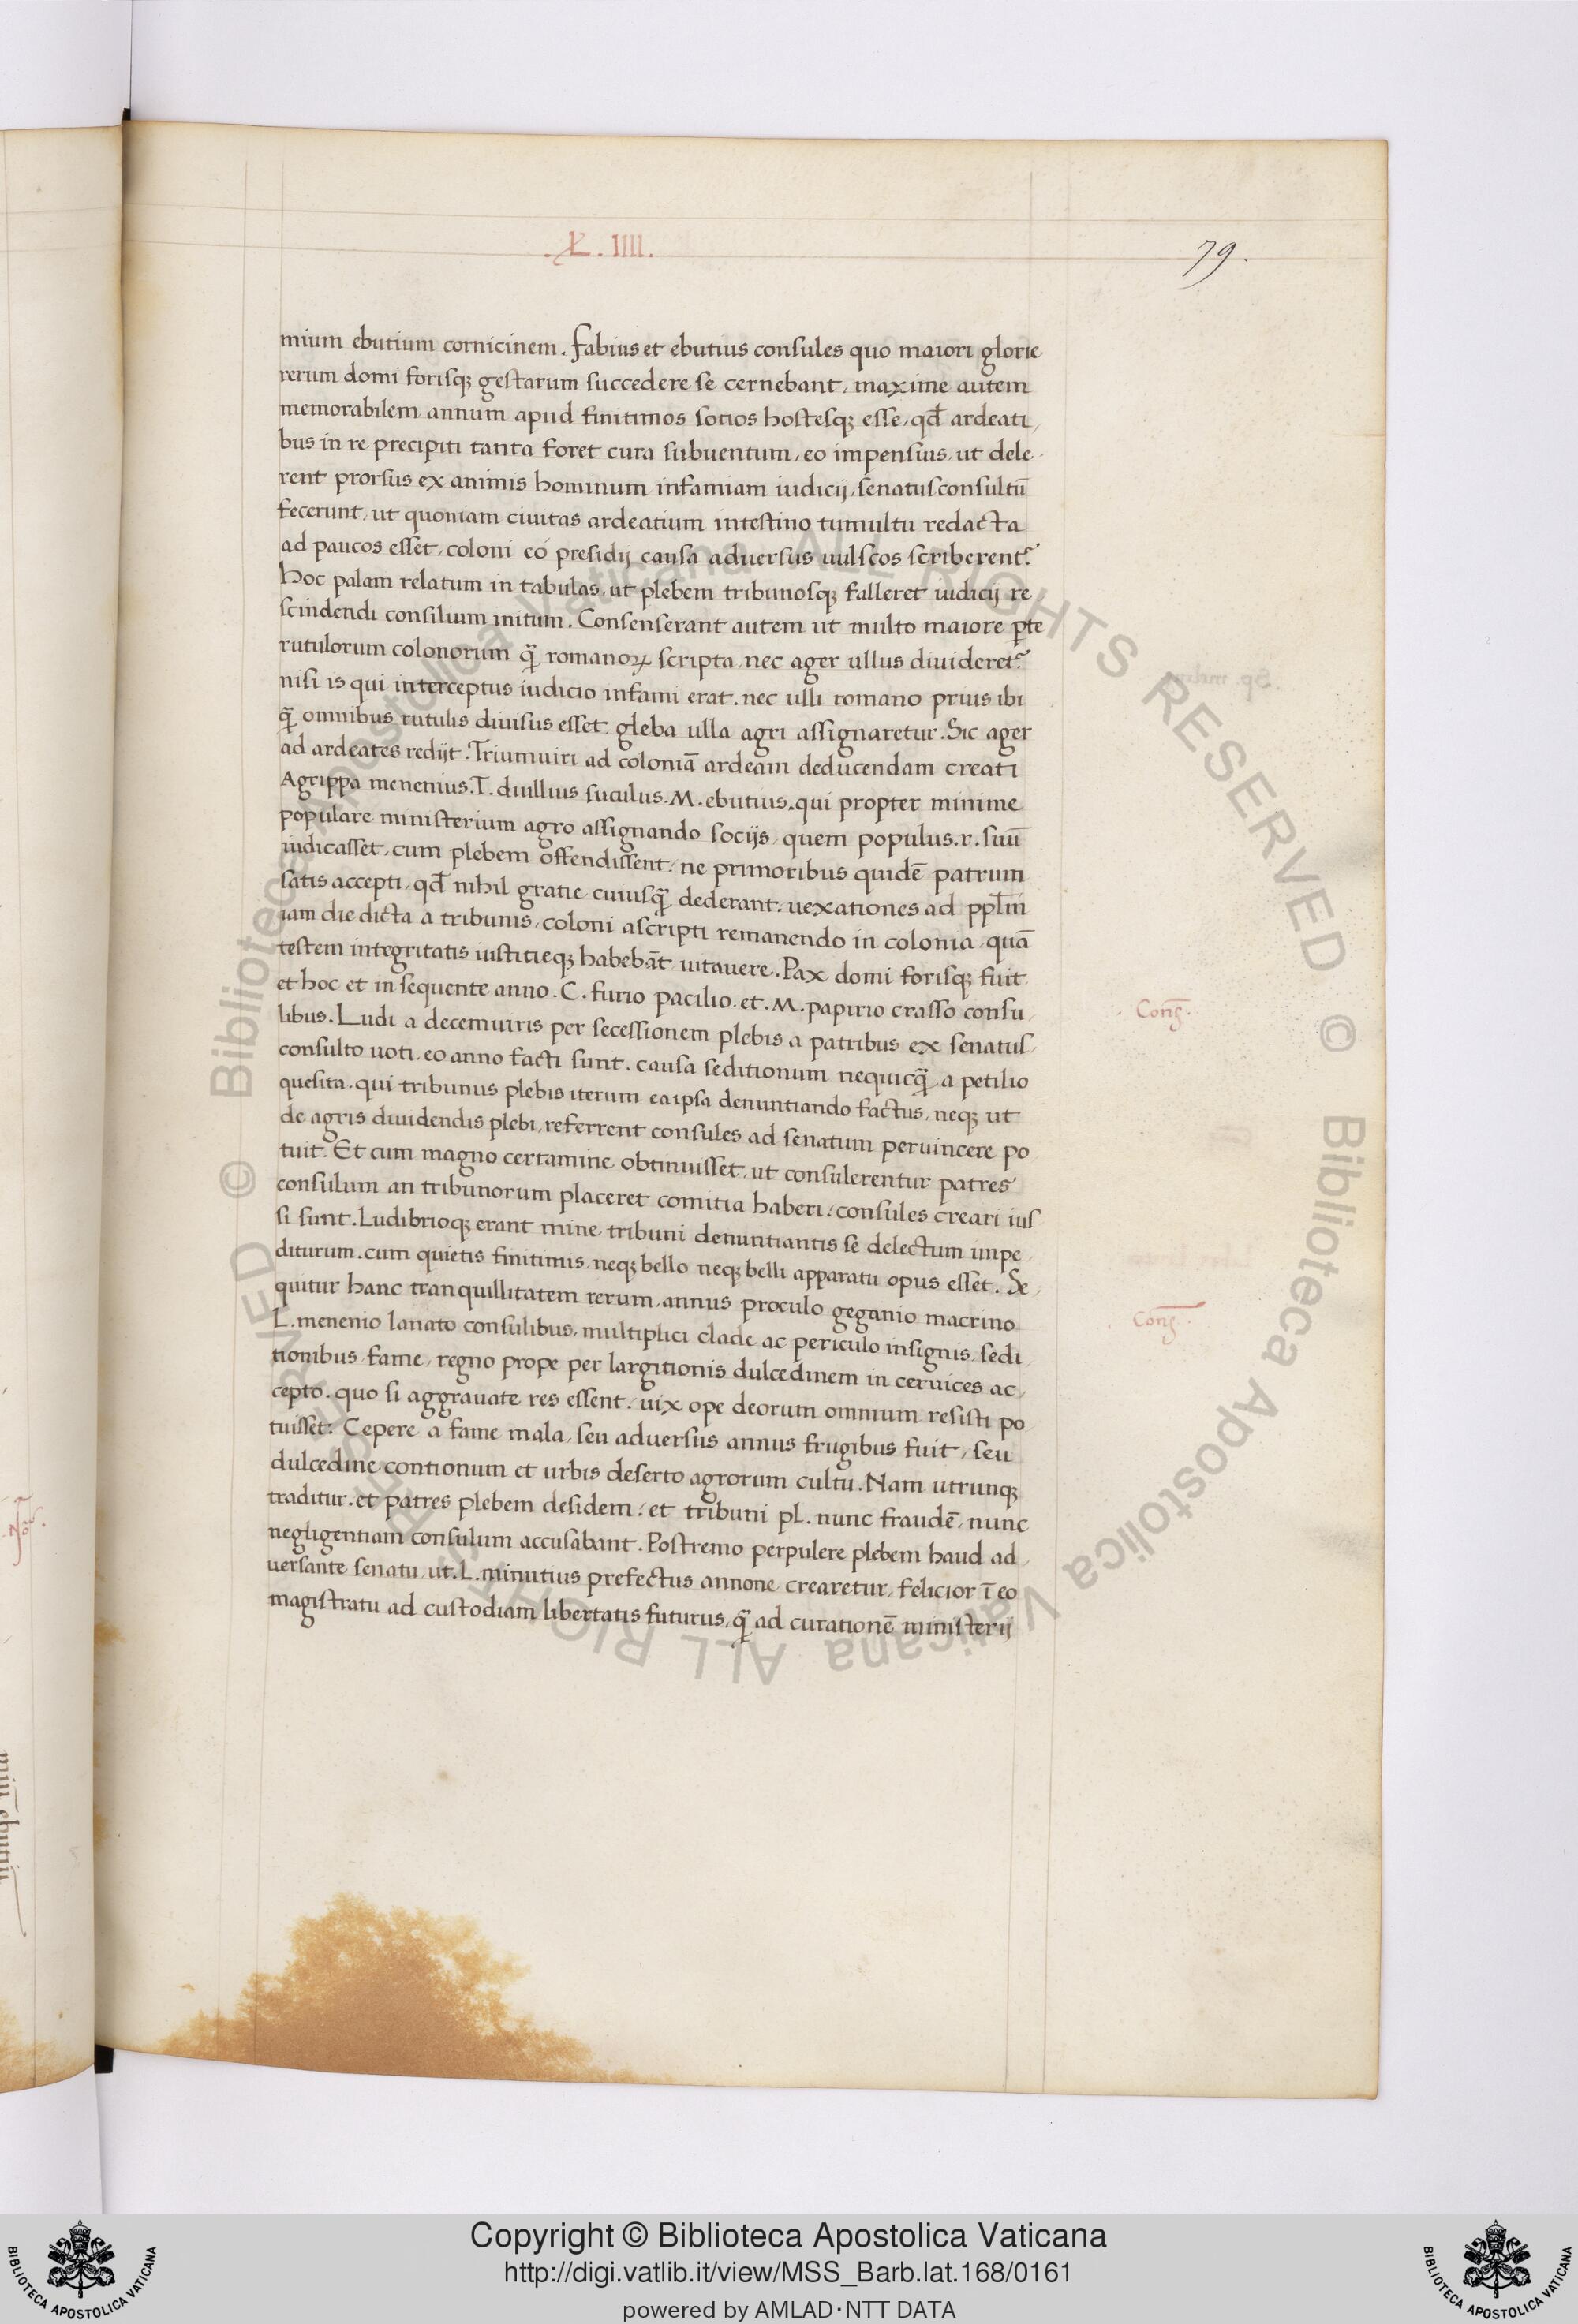 .L. IIII.
79.
mium ebutium cornicinem. Fabius et ebutius consules quo maiori glorie
rerum domi forisqꝫ gestarum succedere se cernebant, maxime autem
memorabilem annum apud finitimos socios hostesqꝫ esse, qđ ardeati,
bus in re precipiti tanta foret cura subuentum, eo impensius, ut dele,
rent prorsus ex animis hominum infamiam iudicij, senatusconsultū
fecerunt, ut quoniam ciuitas ardeatium intestino tumultu redacta
ad paucos esset, coloni eó presidij causa aduersus uulscos scriberent᷑.
Hoc palam relatum in tabulas, ut plebem tribunosqꝫ falleret iudicij re
scindendi consilium initum. Consenserant autem ut multo maiore ꝑte
rutulorum colonorum q̄̃ romanoꝝ scripta, nec ager ullus diuideret᷑
nisi is qui interceptus iudicio infami erat. nec ulli romano prius ibi
q̄̃ omnibus rutulis diuisus esset. gleba ulla agri assignaretur. Sic ager
ad ardeates redijt. Triumuiri ad coloniā ardeam deducendam creati
Agrippa menenius. T. duillius siculus. M. ebutius. qui propter minime
populare ministerium agro assignando socijs, quem populus .r. suū
iudicasset, cum plebem offendissent: ne primoribus quidē patrum
satis accepti, qđ nihil gratie cuiusq̄̃ dederant. uexationes ad ppl̄m
iam die dicta a tribunis, coloni ascripti remanendo in colonia, quā
testem integritatis iustitieqꝫ habebāt uitauere. Pax domi forisqꝫ fuit
et hoc et in sequente anno. C. furio pacilio et. M. papirio crasso consu,
libus. Ludi a decemuiris per secessionem plebis a patribus ex senatus,
consulto uoti, eo anno facti sunt. causa seditionum nequicq̄̃ a petilio
quesita. qui tribunus plebis iterum ea ipsa denuntiando factus, neqꝫ ut
de agris diuidendis plebi, referrent consules ad senatum peruincere po
tuit. Et cum magno certamine obtinuisset, ut consulerentur patres
consulum an tribunorum placeret comitia haberi: consules creari ius
si sunt. Ludibrioqꝫ erant mine tribuni denuntiantis se delectum impe,
diturum. cum quietis finitimis, neqꝫ bello neqꝫ belli apparatu opus esset. Se,
quitur hanc tranquillitatem rerum, annus proculo geganio macrino
L. menenio lanato consulibus, multiplici clade ac periculo insignis, sedi
tionibus, fame, regno prope per largitionis dulcedinem in ceruices ac,
cepto. quo si aggrauate res essent: uix ope deorum omnium resisti po
tuisset. Cepere a fame mala, seu aduersus annus frugibus fuit, seu
dulcedine contionum et urbis deserto agrorum cultu. Nam utrunqꝫ
traditur. et patres plebem desidem: et tribuni pl. nunc fraudē, nunc
negligentiam consulum accusabant. Postremo perpulere plebem haud ad,
uersante senatu, ut. L. minutius prefectus annone crearetur, felicior ī eo
magistratu ad custodiam libertatis futurus, q̄̃ ad curationē ministerij
Conſ̄.
Conſ̄.
Copyright © Biblioteca Apostolica Vaticana
http://digi.vatlib.it/view/MSS_Barb.lat.168/0161
powered by AMLAD·NTT DATA
BIBLIOTECA APOSTOLICA VATICANA
BIBLIOTECA APOSTOLICA VATICANA
© Biblioteca Apostolica Vaticana ALL RIGHTS RESERVED
© Biblioteca Apostolica Vaticana ALL RIGHTS RESERVED